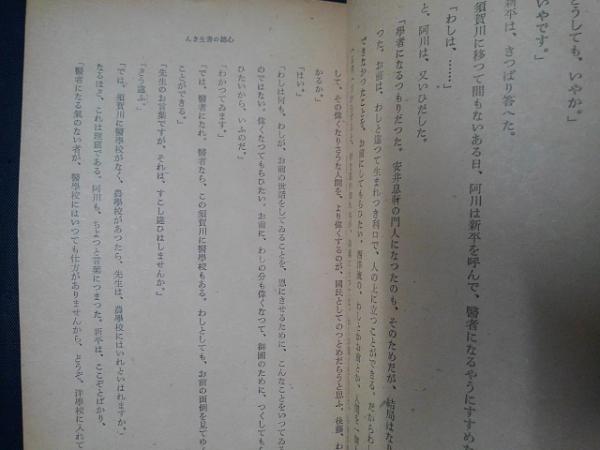 どうしても、いやか。」
いやです。」
新平は、きつぱり答へた。
須賀川に移つて間もないある日、阿川は新平を呼んで、醫者になるやうにすすめた
「わしは、……」
と、阿川は、又いひだした。
「學者になるつもりだつた。安井息軒の門人になつたのも、そのためだが、結局はなり
つた。お前は、わしと違つて生まれつき利口で、人の上に立つことができる。だからわし
できなかつたことを、お前にしてもらひたい。
して、その偉くなりさうな人間を、より偉くするのが、國民としてのつとめだらうと思ふ。後藤、わ
かるか。」
「はい。」
「わしは何も、わしが、お前の世話をしてゐることを、恩にきせるために、こんなことをいつてゐる
のではない。偉くなつてもらひたい。お前に、わしの分も偉くなつて、御國のために、つくしても
ひたいから、いふのだ。」
「わかつてゐます。」
「では、醫者になれ。醫者なら、この須賀川に醫學校もある。わしとしても、お前の面倒を見てゆく
ことができる。」
「先生のお言葉ですが、それは、すこし違ひはしませんか。」
「どう違ふ。」
「では、須賀川に醫學校がなく、農學校があつたら、先生は、農學校にはいれといはれますか。」
なるほど、これは理窟である。阿川も、ちよつと言葉につまつた。新平は、ここぞとばかり、
「醫者になる氣のない者が、醫學校にはいつても仕方がありませんから、どうぞ、洋學校に入れて
心雄の書生さん